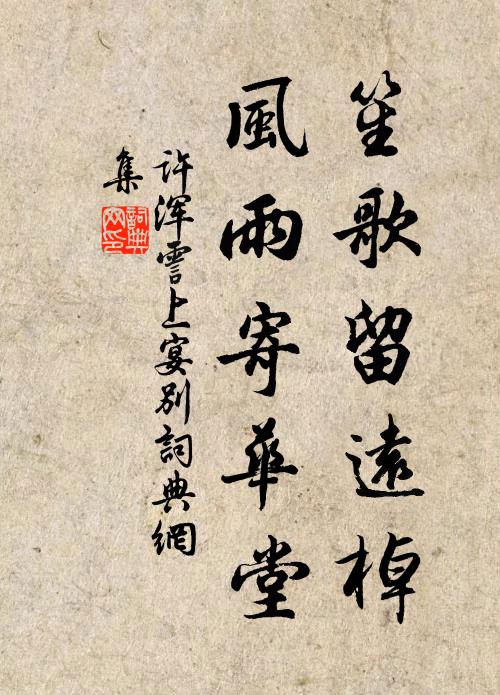 笙歌留遠棹
風雨寄華堂
許渾霅上宴別詞典網
集
詞典
网印